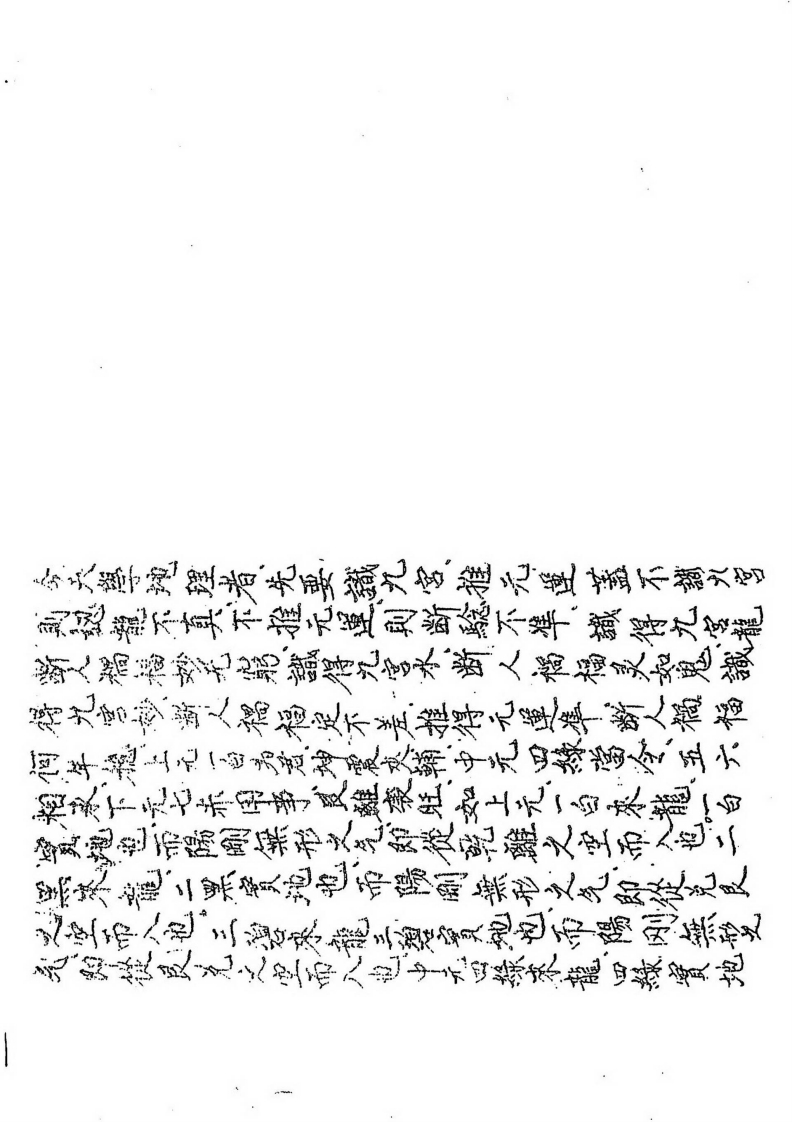 今夫學地理者、先要識九宮、推元運、蓋不識九宮
則認龍不真、不推元運、則斷驗不準、識得九宮龍
斷人禍福妙无窮、識得九宮水、斷人禍福灵如鬼、識
得九宮妙、斷人禍福定不差、推得元運準、斷人禍福
何年龍、上元一白為君、坤震夾輔、中元四綠當令、五六
相來、下元七赤用事、艮離衰旺、如上元一白來龍、一白
實地也、而陽剛無形之炁、即從乾離之空而入也、二
黑來龍、二黑實地也、而陽剛無形之炁、即從兌艮
之空而入也、三碧來龍、三碧實地也、而陽剛無形之
炁、即從艮兌之空而入也、中元四綠來龍、四綠實地